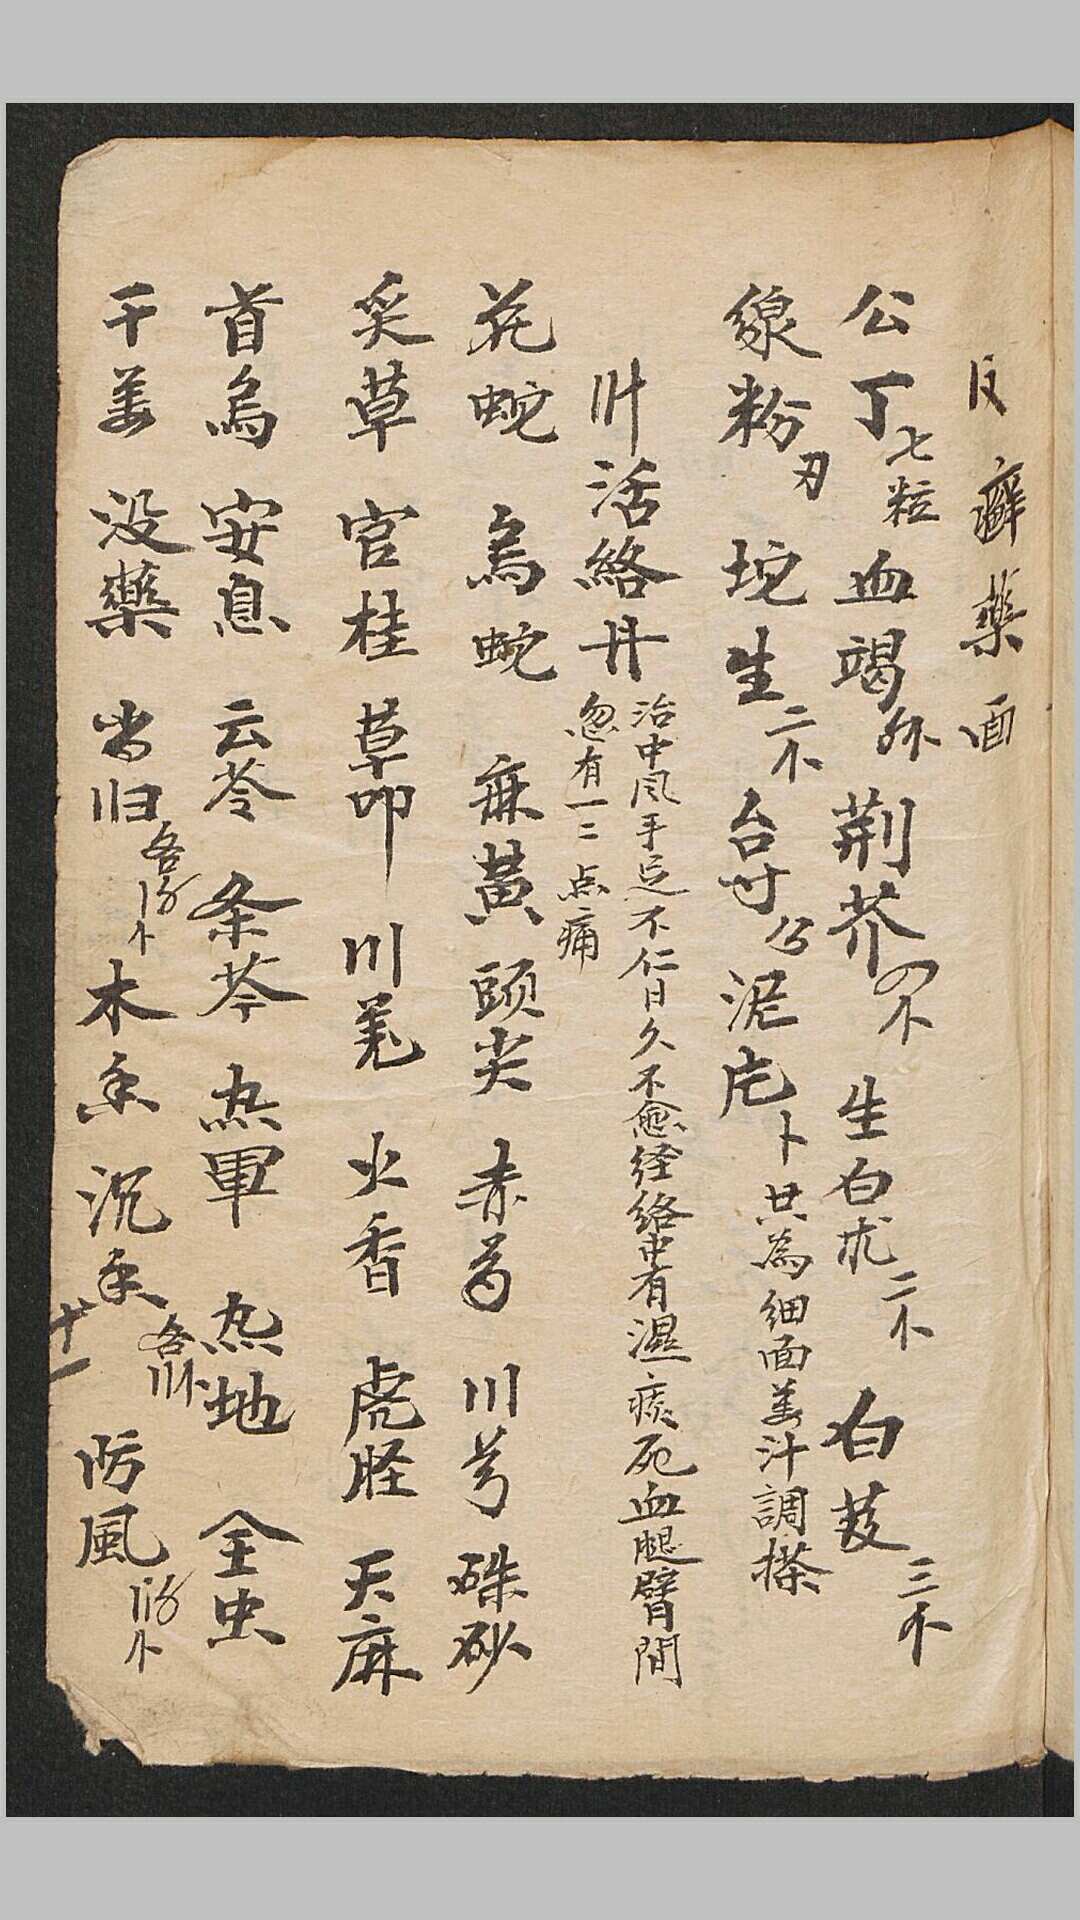 皮癬藥面
公丁七粒 血竭 荆芥 四个 生白朮 二个 白芨 三个
線粉 坨生 二个 台寸 泥片 卜 共為細面姜汁調搽
川活絡丹 治中风手足不仁日久不愈经络中有濕痰死血腿臂間
忽有一二点痛
花蛇 烏蛇 麻黄 頭尖 赤芍 川芎 硃砂
炙草 官桂 草叩 川羌 火香 虎胫 天麻
首烏 安息 云苓 条芩 热軍 热地 全虫
干姜 没藥 当归 各 个 木香 沉香 各 防風
十一